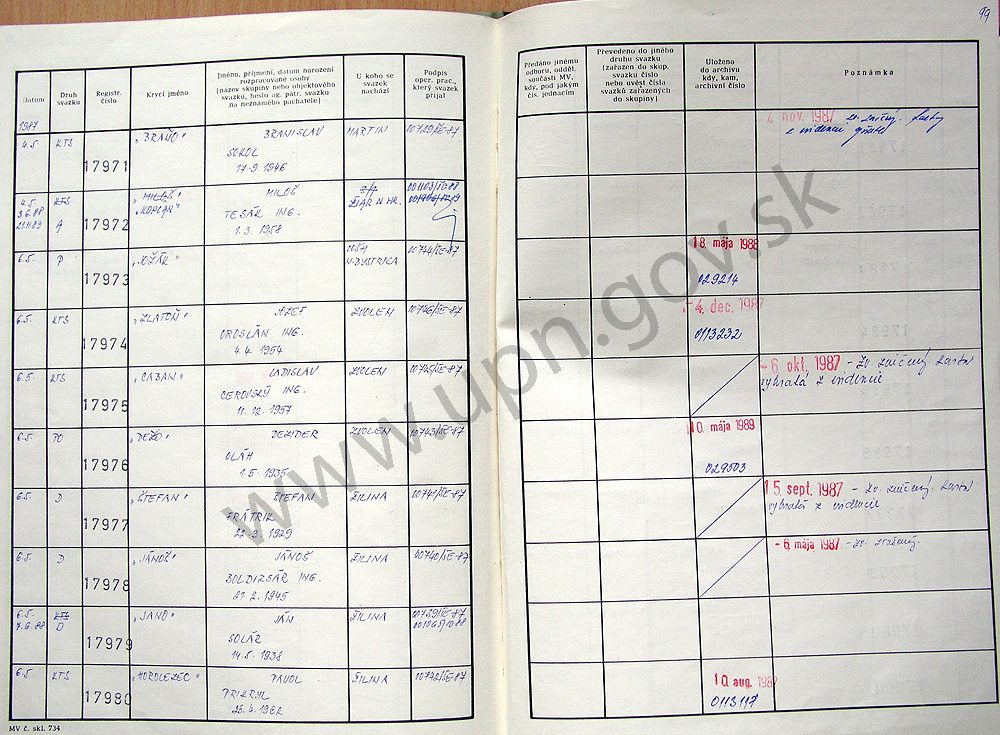 99
Datum
Druh svazku
Registr. číslo
Krycí jméno
Jméno, příjmení, datum narození
rozpracované osoby
(název skupiny nebo objektového
svazku, heslo ag. pátr. svazku
na neznámého pachatele)
U koho se
svazek
nachází
Podpis
oper. prac.,
který svazek
přijal
Předáno jinému
odboru, odděl.
součásti MV,
kdy, pod jakým
čís. jednacím
Převedeno do jiného
druhu svazku
(zařazen do skup.
svazku číslo
nebo uvést čísla
svazků zařazených
do skupiny)
Uloženo
do archivu
kdy, kam,
archivní číslo
Poznámka
1987
4.5. KTS 17971 "BRAŇO" BRANISLAV MARTIN 00729/ŠE-87
SOKOL
17.9.1946
nov. 1987 zv. zničený. Lustr.
z evidencie
4.5. KTS 17972 "MILOŠ" MILOŠ
A TESÁR ING. ŽIAR N HR.
1.3.1958
6.5. P 17973 "JOŽÁK" 00744/ŠE-87
B-BYSTRICA
18. mája 1988
029214
6.5. KTS 17974 "ZLATOŇ" JOZEF ZVOLEN 00746/ŠE-87
OROSLÁN ING.
4.4.1954
4. dec. 1987
0113232
6.5. KTS 17975 "CABAN" LADISLAV ZVOLEN 00745/ŠE-87
CEROVSKÝ ING.
11.12.1957
-6. okt. 1987 - Zv. zničený
z evidencie
6.5. PO 17976 "DEŽO" DEZIDER ZVOLEN 00743/ŠE-87
OLÁH
1.5.1935
10. mája 1989
029503
6.5. D 17977 "ŠTEFAN" ŠTEFAN ŽILINA 00741/ŠE-87
FRÁTRIK
22.3.1929
15. sept. 1987 - Zv. zničený.
z evidencie
6.5. D 17978 "JÁNOŠ" JÁNOŠ ŽILINA 00740/ŠE-87
BOLDIZSÁR ING.
27.2.1945
-6. mája 1987. - Zv.
6.5. KTS 17979 "JANO" JÁN ŽILINA 00739/ŠE-87
7.6.88 D SOLÁR
14.5.1938
6.5. KTS 17980 "HOROLEZEC" PAVOL ŽILINA 00742/ŠE-87
PRIKRYL
25.4.1962
10. aug. 1987
0113117
MV č. skl. 734
www.upn.gov.sk